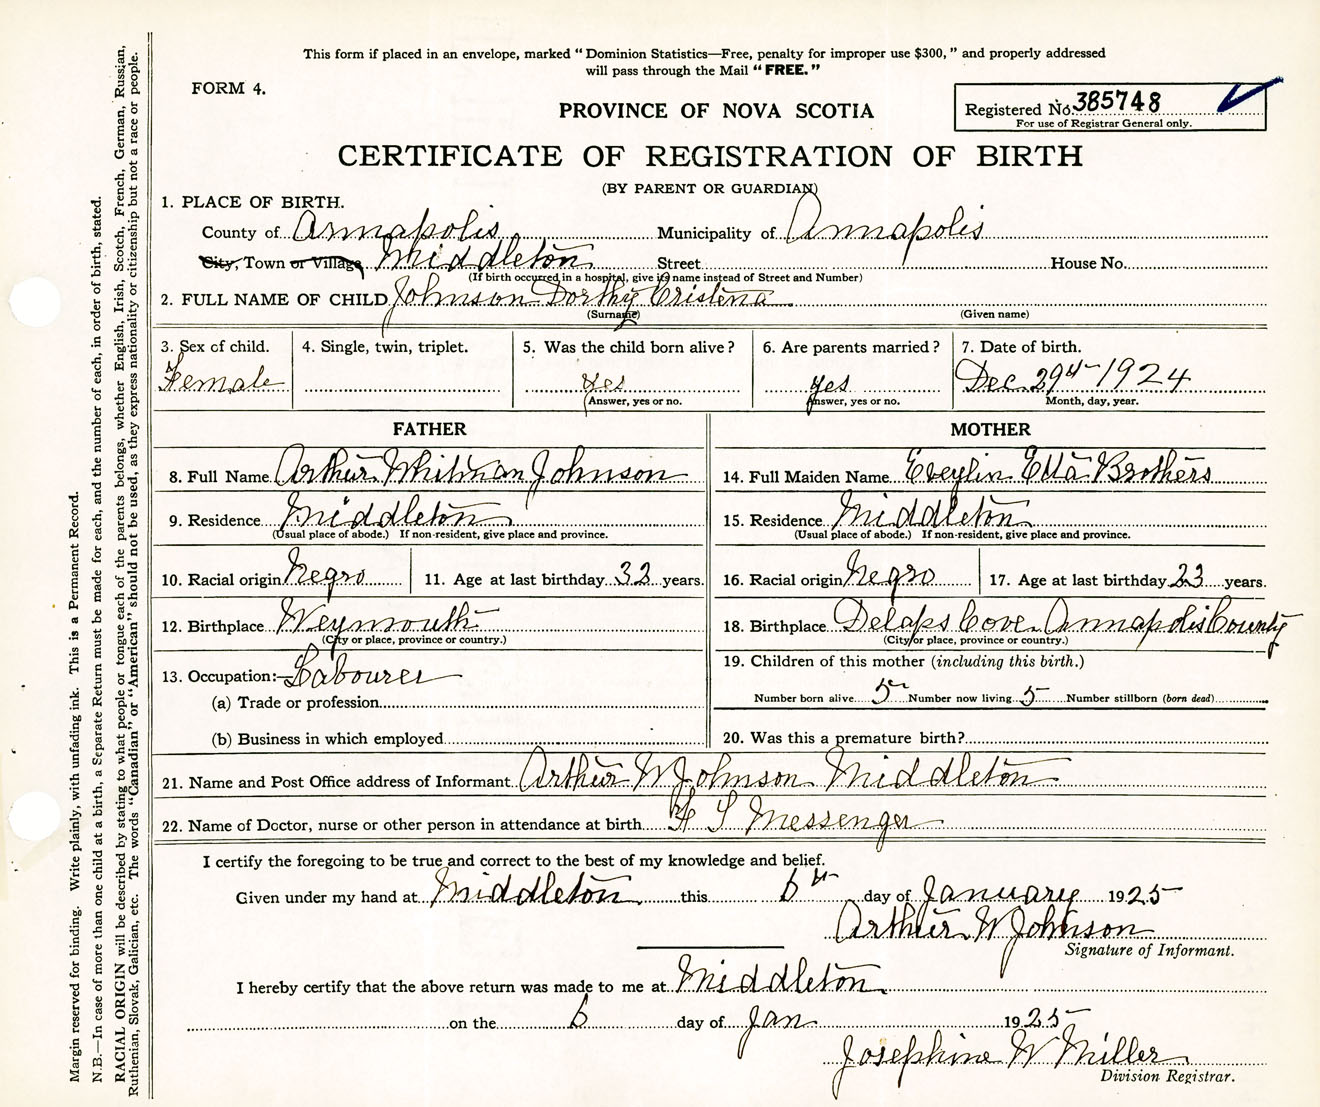 This form if placed in an envelope, marked "Dominion Statistics—Free, penalty for improper use $300," and properly addressed
will pass through the Mail "FREE."
FORM 4.
PROVINCE OF NOVA SCOTIA
Registered No. 385748
For use of Registrar General only.
CERTIFICATE OF REGISTRATION OF BIRTH
(BY PARENT OR GUARDIAN)
1. PLACE OF BIRTH.
County of Annapolis Municipality of Annapolis
City, Town or Village Middleton Street House No.
(If birth occurred in a hospital, give its name instead of Street and Number)
2. FULL NAME OF CHILD Johnson Dorthy Cristena
(Surname) (Given name)
3. Sex of child. 4. Single, twin, triplet. 5. Was the child born alive? 6. Are parents married? 7. Date of birth.
Female Yes yes Dec. 29th 1924
Answer, yes or no. Answer, yes or no. Month, day, year.
FATHER MOTHER
8. Full Name Arthur Whitman Johnson 14. Full Maiden Name Eveylin Etta Brothers
9. Residence Middleton 15. Residence Middleton
(Usual place of abode.) If non-resident, give place and province. (Usual place of abode.) If non-resident, give place and province.
10. Racial origin Negro 11. Age at last birthday 32 years. 16. Racial origin Negro 17. Age at last birthday 23 years.
12. Birthplace Weymouth 18. Birthplace Delaps Cove Annapolis County
(City or place, province or country.) (City or place, province or country.)
13. Occupation:— Labourer 19. Children of this mother (including this birth.)
(a) Trade or profession Number born alive 5 Number now living 5 Number stillborn (born dead)
(b) Business in which employed 20. Was this a premature birth?
21. Name and Post Office address of Informant Arthur W Johnson Middleton
22. Name of Doctor, nurse or other person in attendance at birth S Messenger
I certify the foregoing to be true and correct to the best of my knowledge and belief.
Given under my hand at Middleton this 6th day of January 1925
Arthur W Johnson
Signature of Informant.
I hereby certify that the above return was made to me at Middleton
on the 6 day of Jan 1925
Josephine W Miller
Division Registrar.
Margin reserved for binding. Write plainly, with unfading ink. This is a Permanent Record.
N.B.—In case of more than one child at a birth, a Separate Return must be made for each, and the number of each, in order of birth, stated.
RACIAL ORIGIN will be described by stating to what people or tongue each of the parents belongs, whether English, Irish, Scotch, French, German, Russian,
Ruthenian, Slovak, Galician, etc. The words "Canadian" or "American" should not be used, as they express nationality or citizenship but not a race or people.